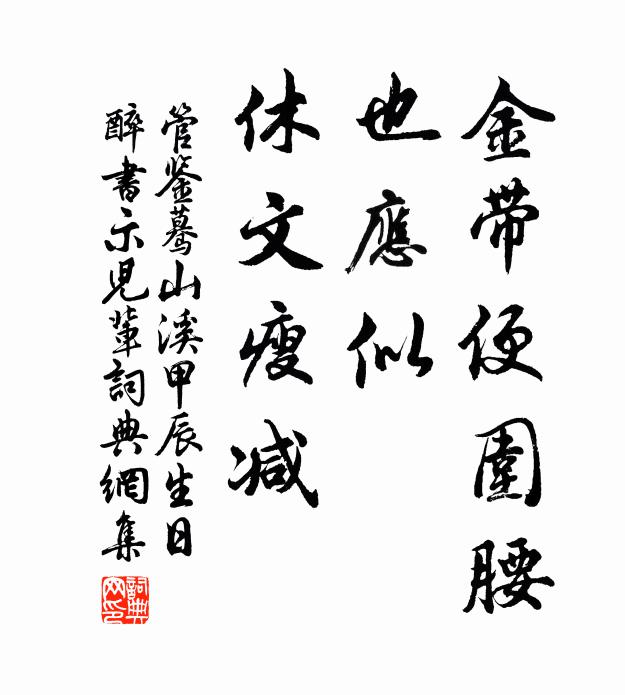 金帶便圍腰
也應似
休文瘦减
管鉴驀山溪甲辰生日
醉書示児輩詞典網集
詞典
网印